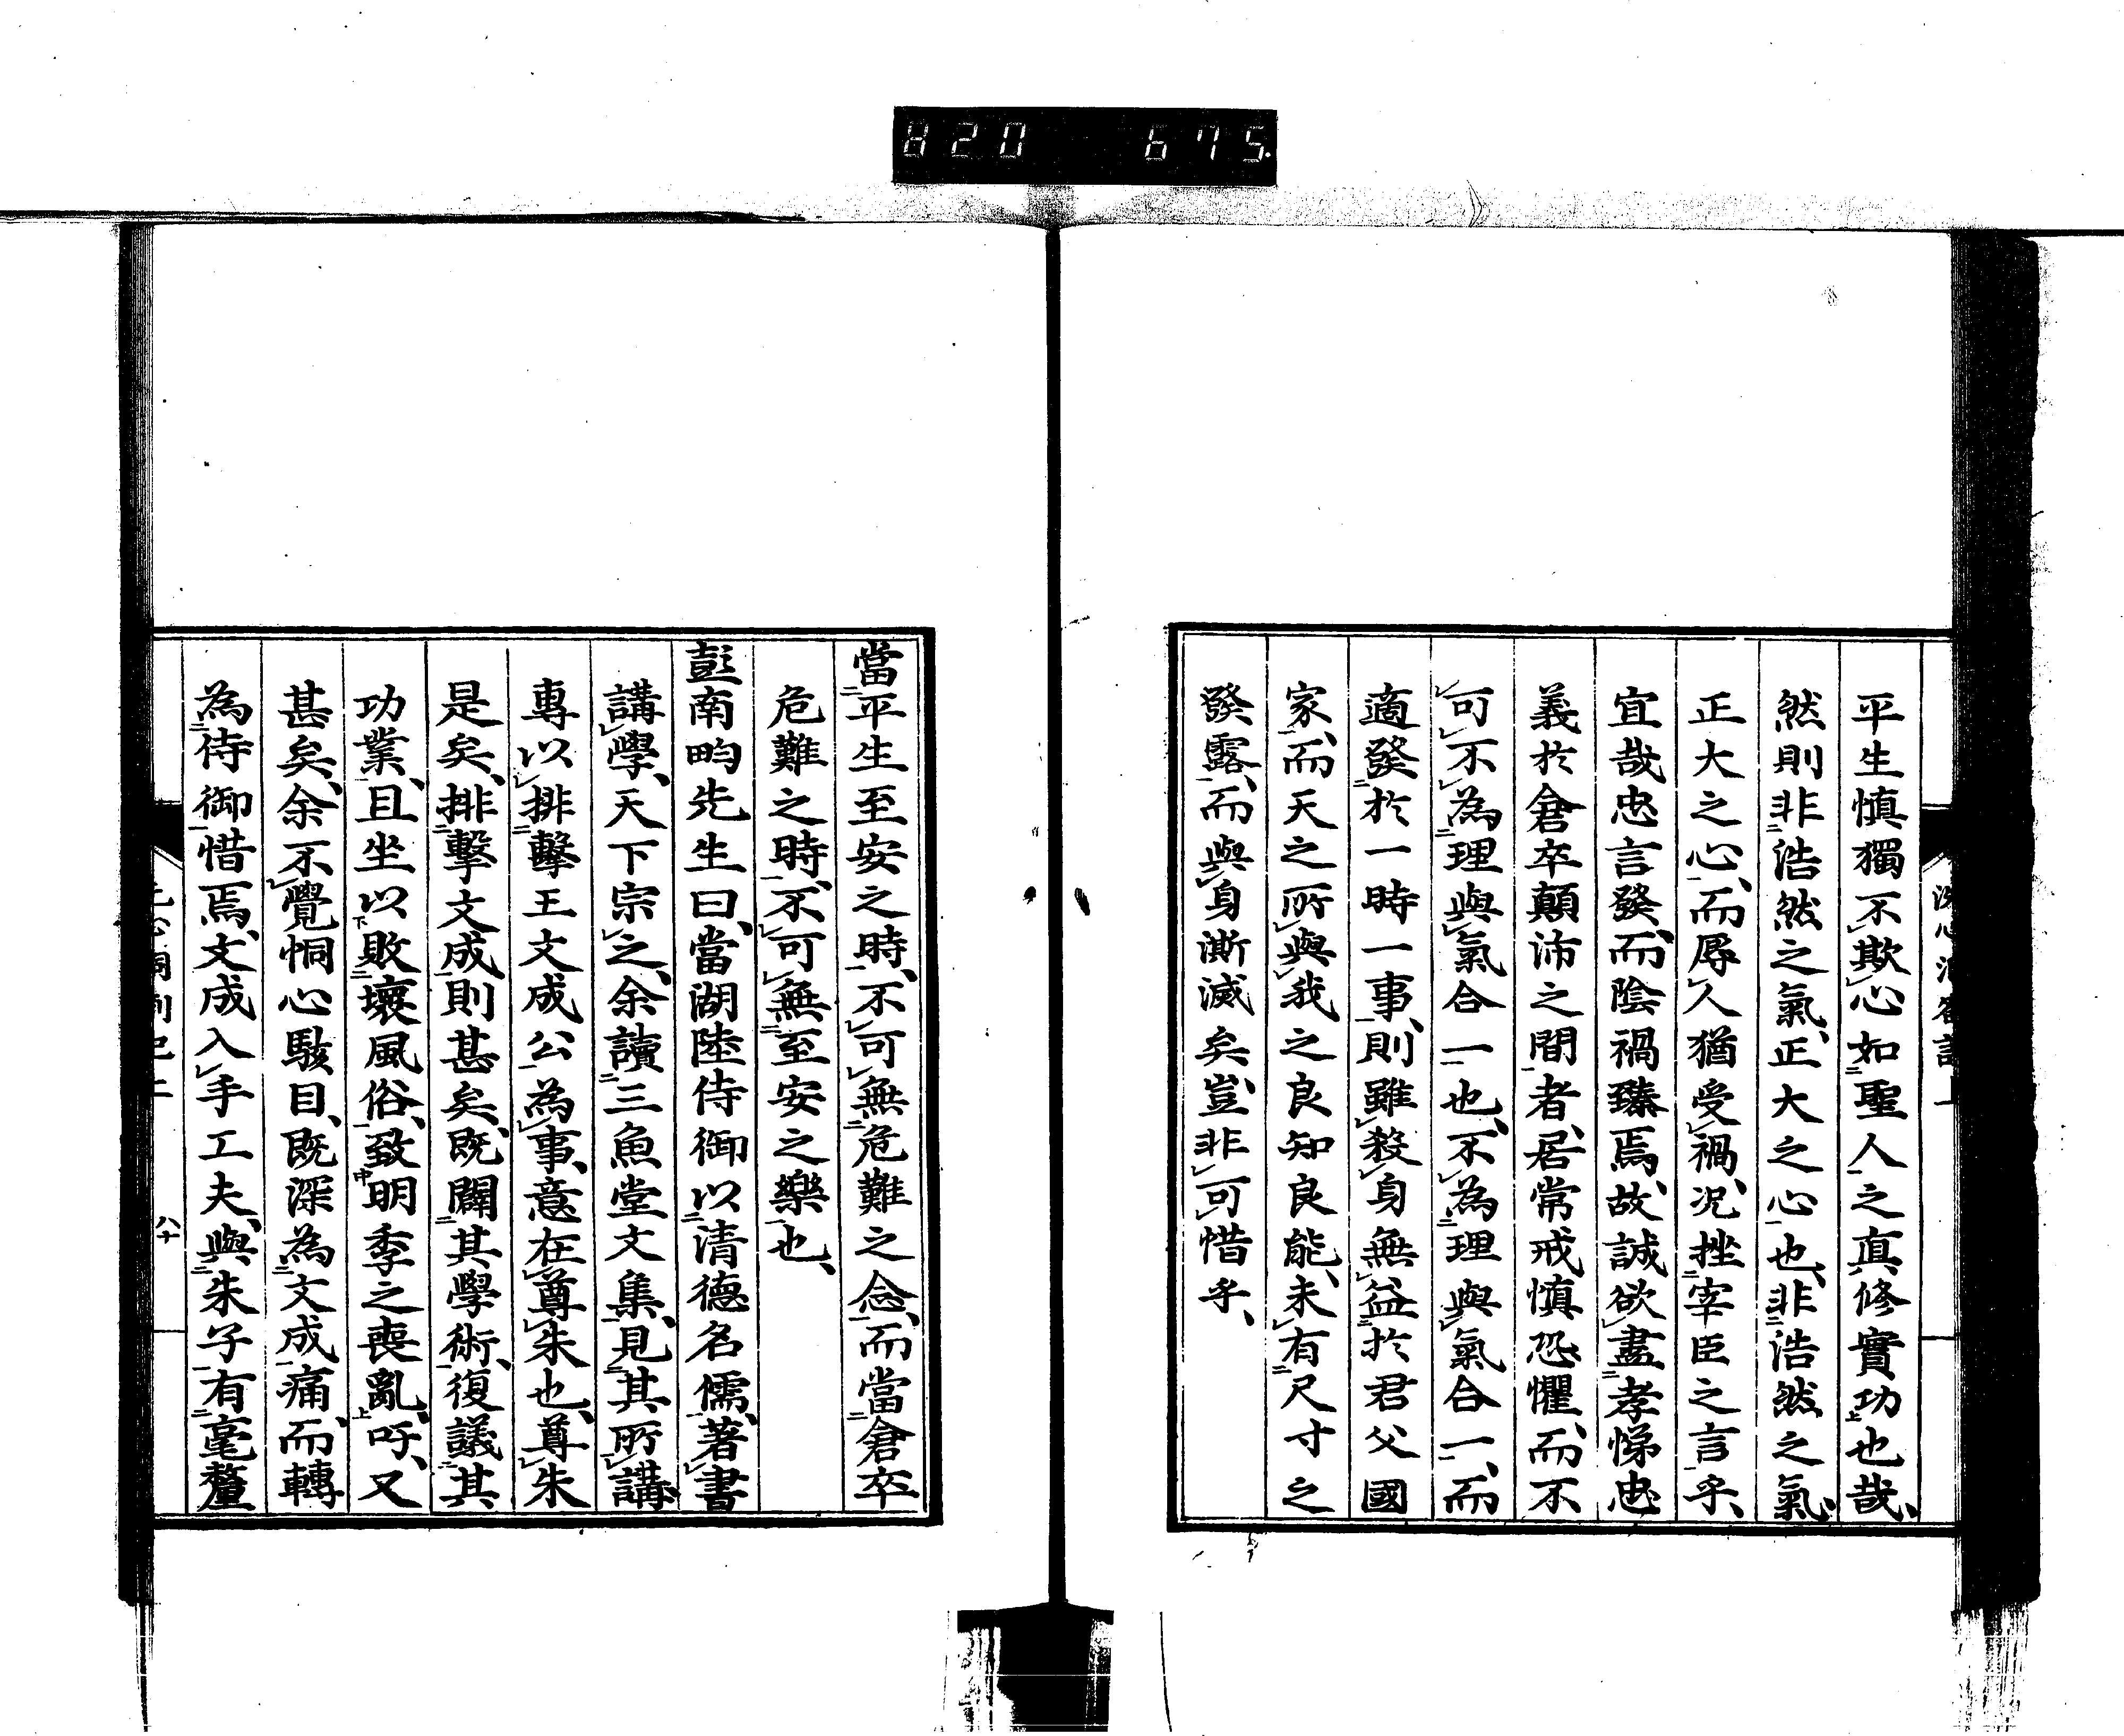 820 675.
平生慎獨不欺心如聖人之真修實功也哉、
然則非浩然之氣、正大之心也、非浩然之氣、
正大之心、而辱人猶受禍、况挫宰臣之言乎、
宜哉忠言發、而陰禍臻焉、故誠欲盡孝悌忠
義於倉卒顛沛之間者、居常戒慎恐懼、而不
可不為理與氣合一也、不為理與氣合一、而
適發於一時一事、則雖殺身無益於君父國
家、而天之所與我之良知良能、未有尺寸之
發露、而與身澌滅矣、豈非可惜乎、
當平生至安之時、不可無危難之念、而當倉卒
危難之時、不可無至安之樂也、
彭南畇先生曰、當湖陸侍御以清德名儒、著書
講學、天下宗之、余讀三魚堂文集、見其所講
專以排擊王文成公為事、意在尊朱也、尊朱
是矣、排擊文成則甚矣、既闢其學術、復議其
功業、且坐以敗壞風俗、致明季之喪亂、吁、又
甚矣、余不覺恫心駭目、既深為文成痛、而轉
為侍御惜焉、文成入手工夫、與朱子有毫釐
八十